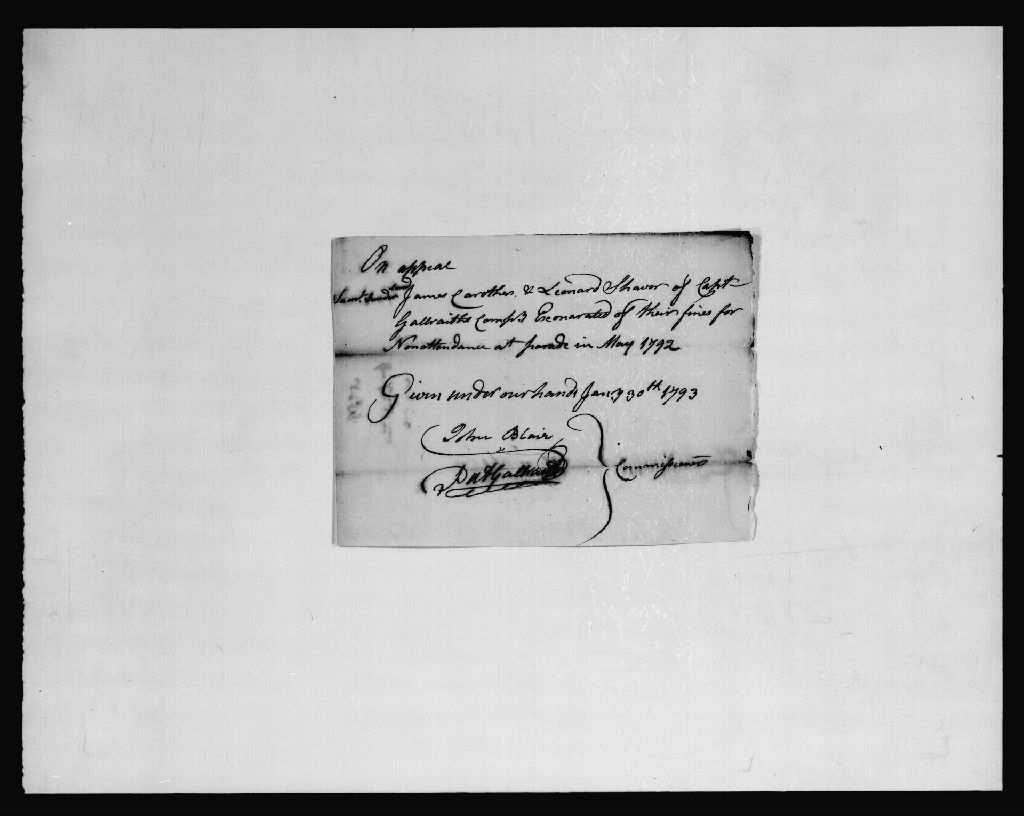 On appeal
James Carothers & Leonard Shaver of Capt
Galbraiths Compy Exonarated of their fines for
Nonattendance at parade in May 1792
Given under our hands Jany 30th 1793
John Blair
Galbraith
Commissioners